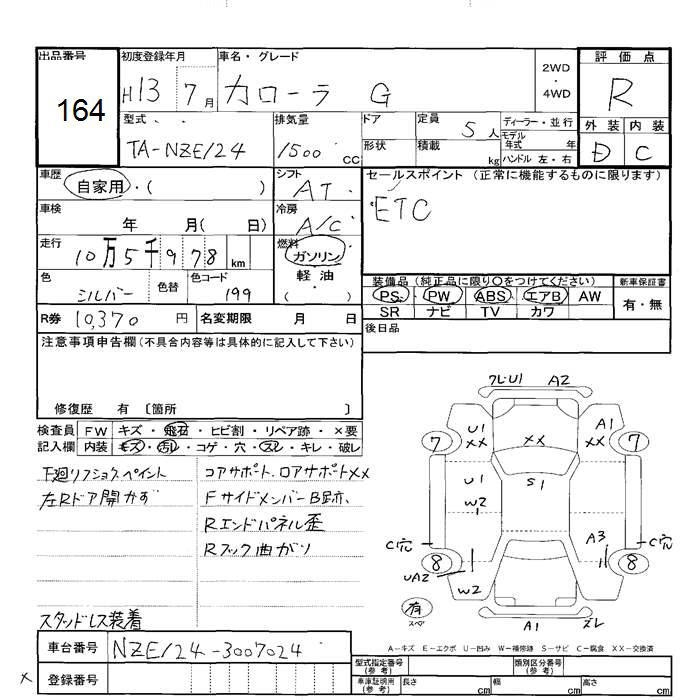 出品番号 初度登録年月 車名・グレード 評価点
164 H13 7月 カローラ G 2WD・4WD R
型式 排気量 ドア 定員 5人 ディーラー・並行 外装 内装
TA-NZE124 1500cc 形状 積載 kg モデル年式 年 ハンドル 左・右 D C
車歴 自家用・( ) シフト AT セールスポイント (正常に機能するものに限ります)
車検 年 月( 日) 冷房 A/C ETC
走行 10万5千978km 燃料 ガソリン
色 シルバー 色替 色コード 199 軽油・( ) 装備品(純正品に限り○をつけてください) 新車保証書
PS PW ABS エアB AW 有・無
R券 10,370円 名変期限 月 日 SR ナビ TV カワ
注意事項申告欄(不具合内容等は具体的に記入して下さい) 後日品
修復歴 有 〔箇所 〕
検査員 FW キズ・飛石・ヒビ割・リペア跡・×要
記入欄 内装 キズ・汚レ・コゲ・穴・スレ・キレ・破レ
下廻リフショク、ペイント コアサポート、ロアサポートXX
左Rドア開かず FサイドメンバーB跡、
Rエンドパネル歪
Rフック曲がり
スタッドレス装着
フレU1 A2
U1 XX A1 XX
7 XX 7
U1 S1
W2
C穴 A3 C穴
8 8
UA2
W2
有
スペア
A1 ズレ
A－キズ E－エクボ U－凹み W－補修跡 S－サビ C－腐食 XX－交換済
車台番号 NZE124-3007024
× 登録番号
型式指定番号(参考) 類別区分番号(参考)
車庫証明用(参考) 長さ cm 幅 cm 高さ cm